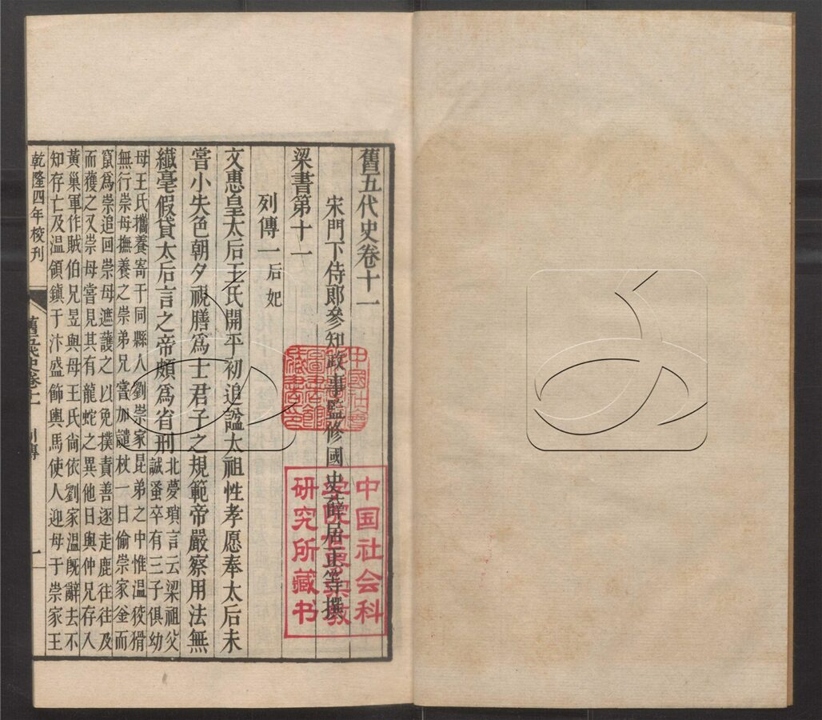 舊五代史卷十一
宋門下侍郎參知政事監修國史薛居正等撰
梁書第十一
列傳一后妃
文惠皇太后王氏開平初追諡太祖性孝愿奉太后未
嘗小失色朝夕視膳爲士君子之規範帝嚴察用法無
纖毫假貸太后言之帝頗爲省刑北夢瑣言云梁祖父
誠蚤卒有三子俱幼
母王氏攜養寄于同縣人劉崇家昆弟之中惟溫狡猾
無行崇母撫養之崇弟兄嘗加譴杖一日偷崇家釜而
竄爲崇追回崇母遮護之以免撲責善逐走鹿往往及
而獲之又崇母嘗見其有龍蛇之異他日與仲兄存入
黃巢軍作賊伯兄昱與母王氏尙依劉家溫旣辭去不
知存亡及溫領鎭于汴盛飾輿馬使人迎母于崇家王
乾隆四年校刊
舊五代史卷十一
列傳
一
中国社会科
研究所藏书